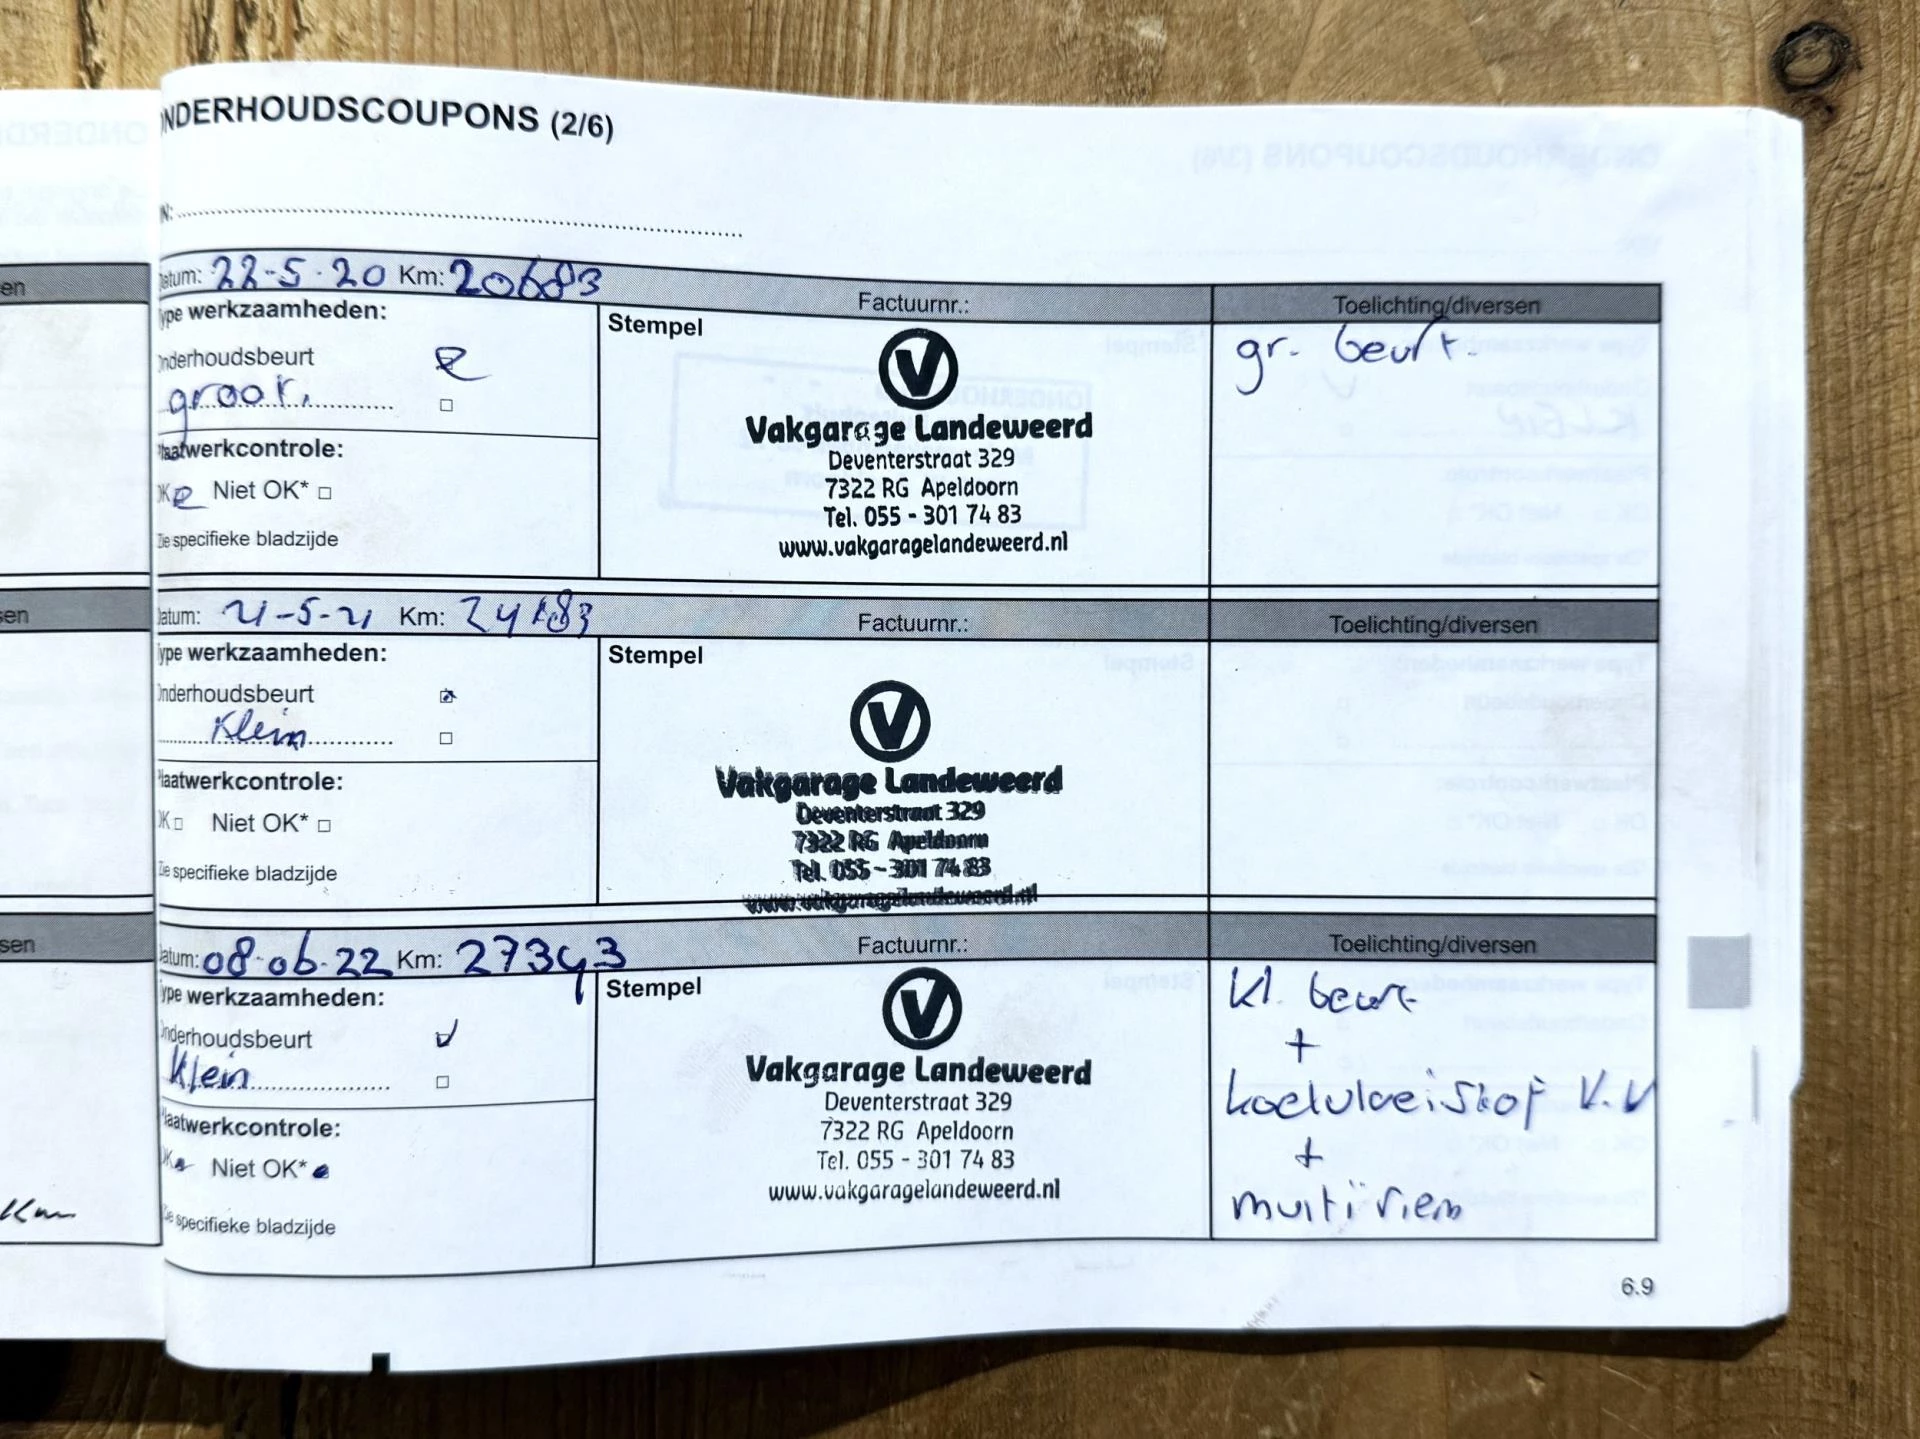 NDERHOUDSCOUPONS (2/6)
N:
Datum: 22-5-20 Km: 20683 Factuurnr.: Toelichting/diversen
Type werkzaamheden: Stempel gr. beurt.
Onderhoudsbeurt
groot.
Plaatwerkcontrole:
OK Niet OK*
Zie specifieke bladzijde
Vakgarage Landeweerd
Deventerstraat 329
7322 RG Apeldoorn
Tel. 055 - 301 74 83
www.vakgaragelandeweerd.nl
sen
Datum: 21-5-21 Km: Factuurnr.: Toelichting/diversen
Type werkzaamheden: Stempel
Onderhoudsbeurt
Klein
Plaatwerkcontrole:
OK Niet OK*
Zie specifieke bladzijde
Vakgarage Landeweerd
Deventerstraat 329
7322 RG Apeldoorn
Tel. 055 - 301 74 83
www.vakgaragelandeweerd.nl
sen
Datum: 08-06-22 Km: 27343 Factuurnr.: Toelichting/diversen
Type werkzaamheden: Stempel
Onderhoudsbeurt
Klein
Plaatwerkcontrole:
OK Niet OK*
Zie specifieke bladzijde
Vakgarage Landeweerd
Deventerstraat 329
7322 RG Apeldoorn
Tel. 055 - 301 74 83
www.vakgaragelandeweerd.nl
kl. beurt
+
koelvloeistof V.V
+
multiriem
6.9